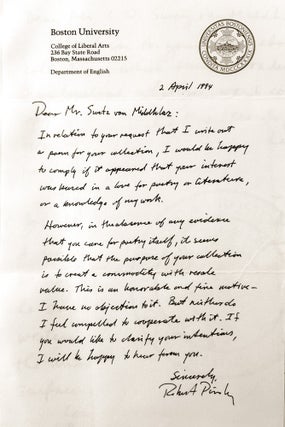 Boston University
College of Liberal Arts
236 Bay State Road
Boston, Massachusetts 02215
Department of English
2 April 1994
Dear Mr. van
In relation to your request that I write out
a poem for your collection, I would be happy
to comply if it appeared that your interest
was based in a love for poetry or literature,
or a knowledge of my work.
However, in the absence of any evidence
that you care for poetry itself, it seems
possible that the purpose of your collection
is to create a commodity with resale
value. This is an honorable and fine motive—
I have no objection to it. But neither do
I feel impelled to cooperate with it. If
you would like to clarify your intentions,
I will be happy to hear from you.
Sincerely,
Robert Pinsky